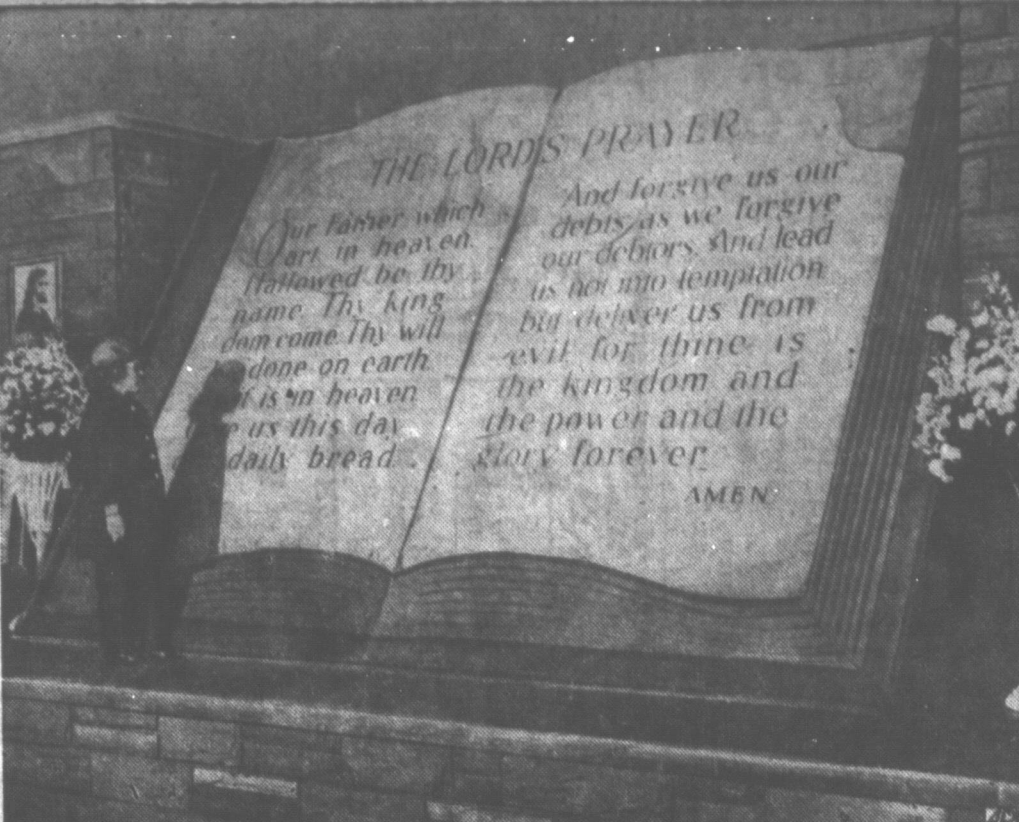 THE LORD'S PRAYER
Our Father which
art in heaven.
Hallowed be thy
name. Thy king
dom come. Thy will
done on earth
it is in heaven
us this day
daily bread.
And forgive us our
debts, as we forgive
our debtors. And lead
us not into temptation
but deliver us from
evil for thine is
the kingdom and
the power and the
glory forever.
AMEN